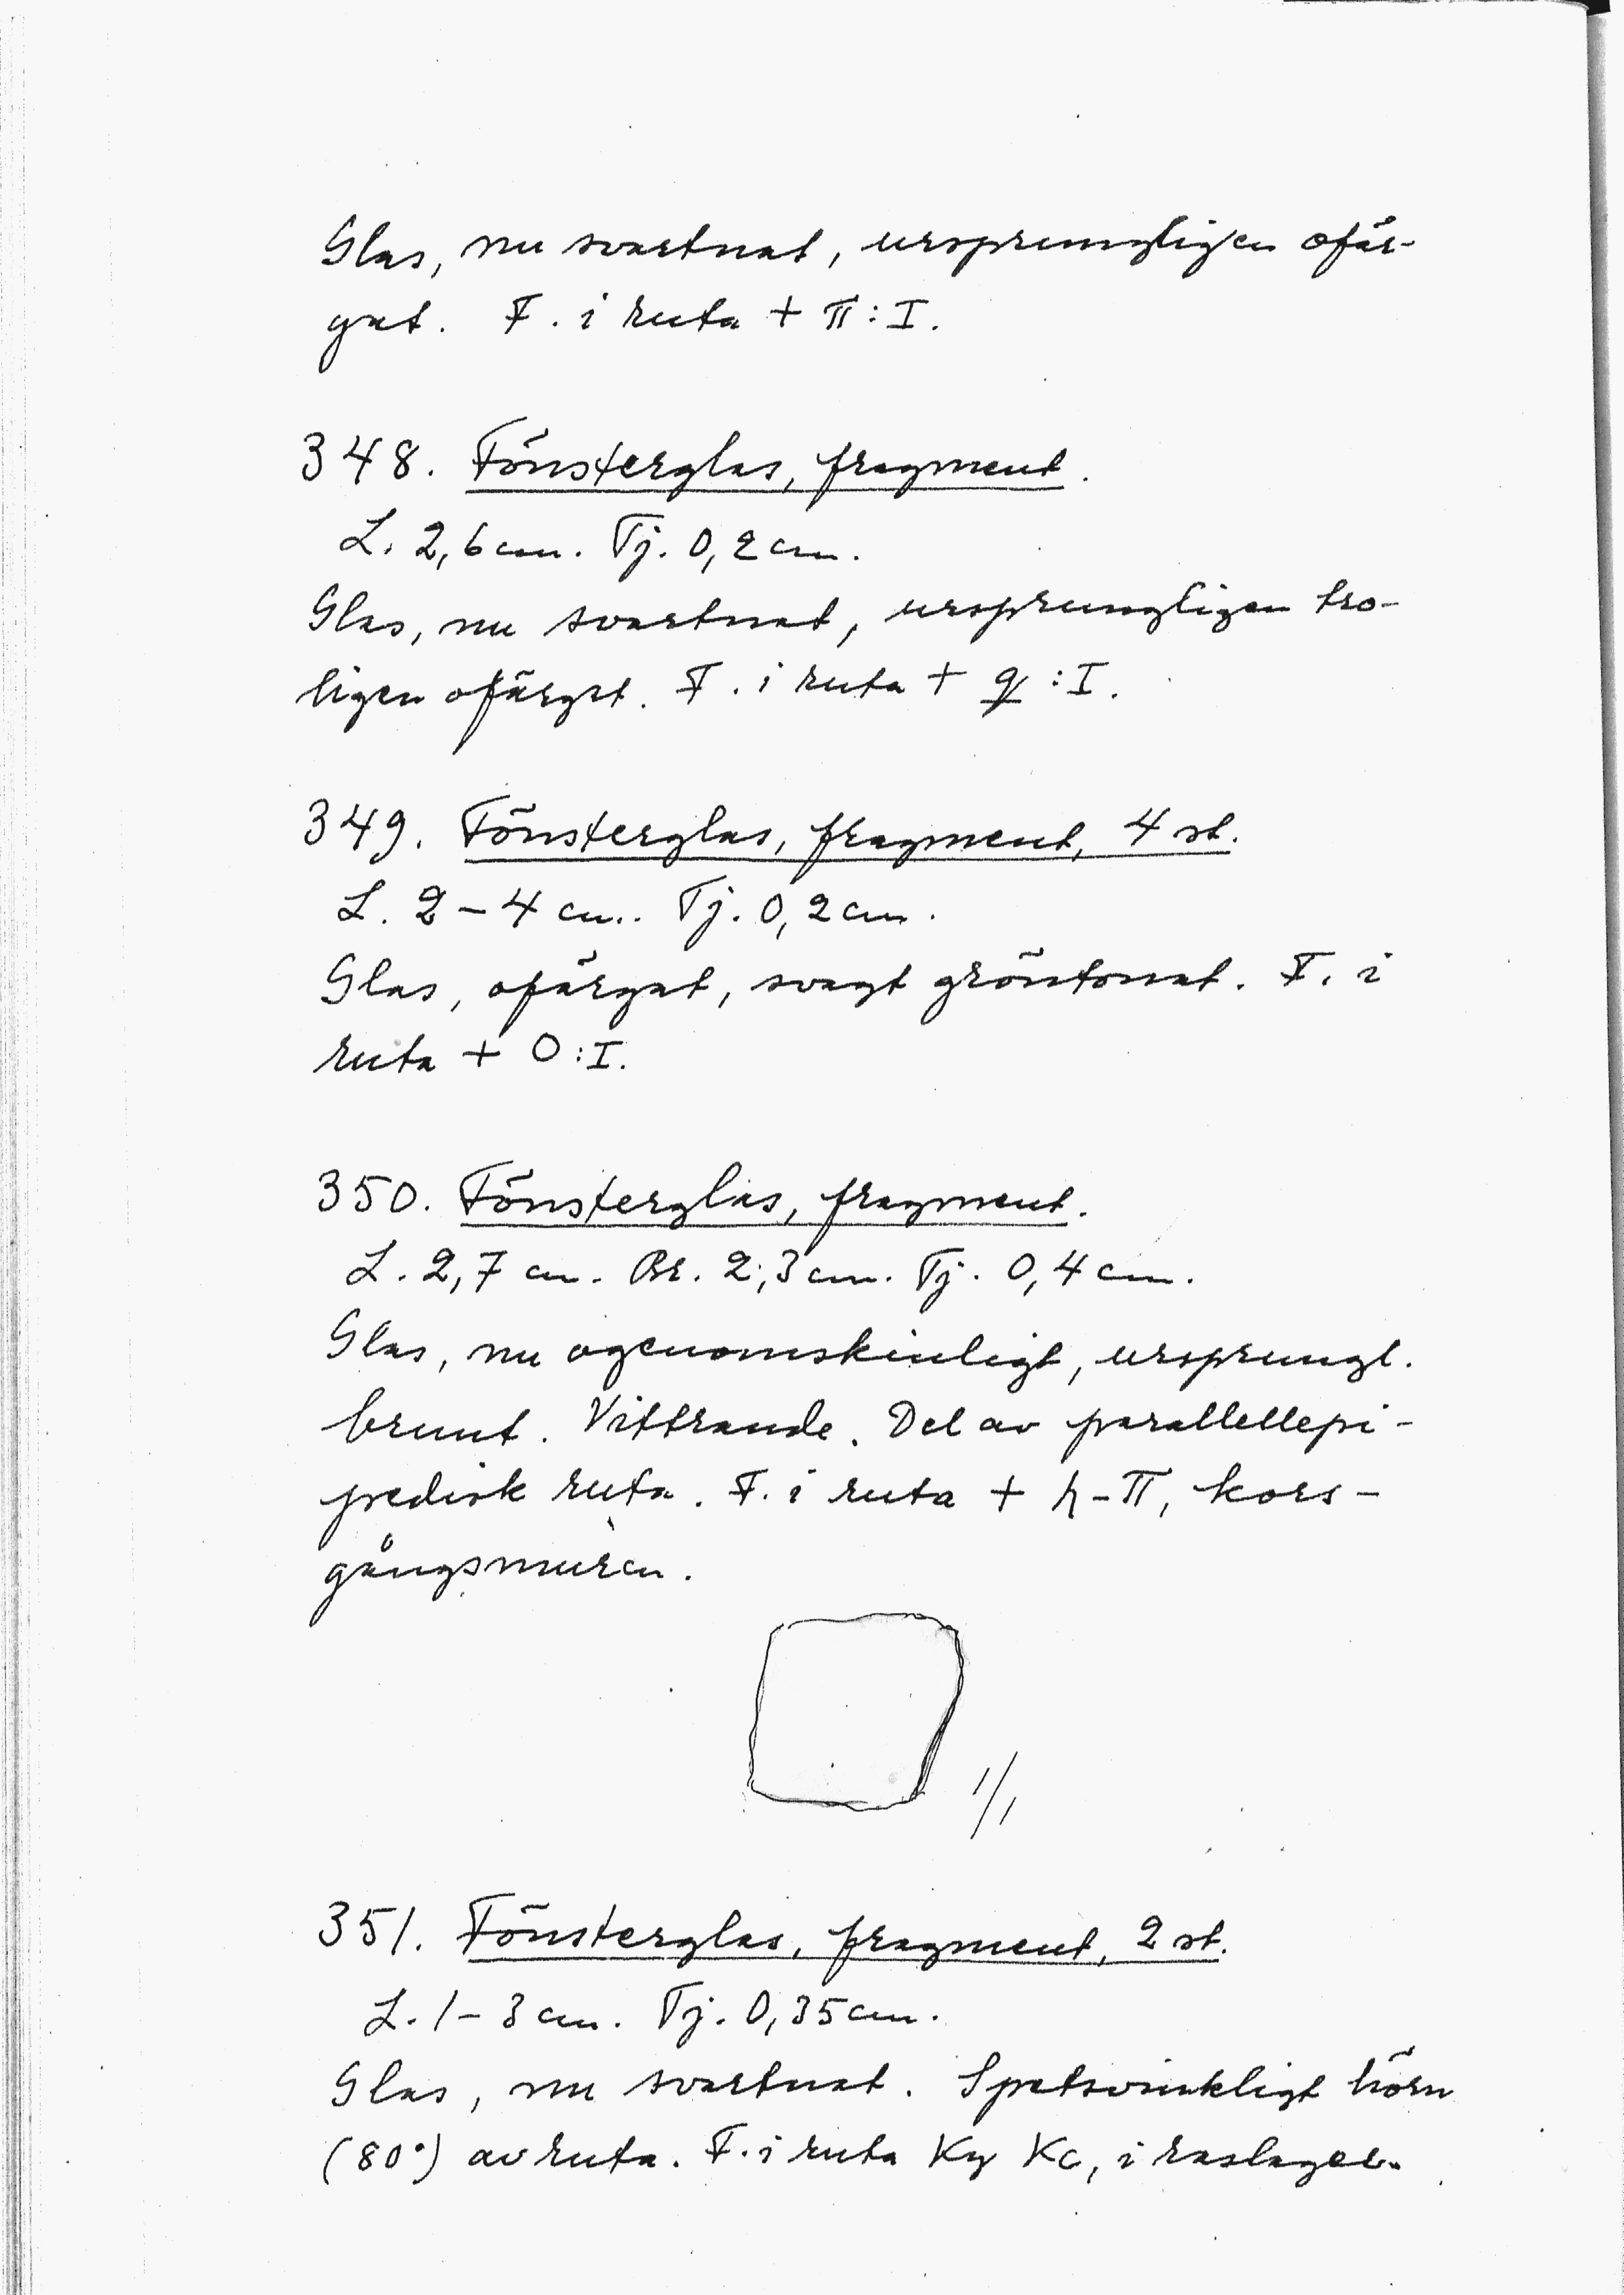 Glas, nu svartnat, ursprungligen ofär-
gat. F. i ruta + π : I.
348. Fönsterglas, fragment.
L. 2,6 cm. Tj. 0,2 cm.
Glas, nu svartnat, ursprungligen tro-
ligen ofärgat. F. i ruta + q : I.
349. Fönsterglas, fragment, 4 st.
L. 2 - 4 cm. Tj. 0,2 cm.
Glas, ofärgat, svagt gröntonat. F. i
ruta + O : I.
350. Fönsterglas, fragment.
L. 2,7 cm. Br. 2,3 cm. Tj. 0,4 cm.
Glas, nu ogenomskinligt, ursprungl.
brunt. Vittrande. Del av parallellepi-
pedisk ruta. F. i ruta + h - π, kors-
gångsmuren.
1/1
351. Fönsterglas, fragment, 2 st.
L. 1 - 3 cm. Tj. 0,35 cm.
Glas, nu svartnat. Spetsvinkligt hörn
(80°) av ruta. F. i ruta Ky Kc, i raslager.